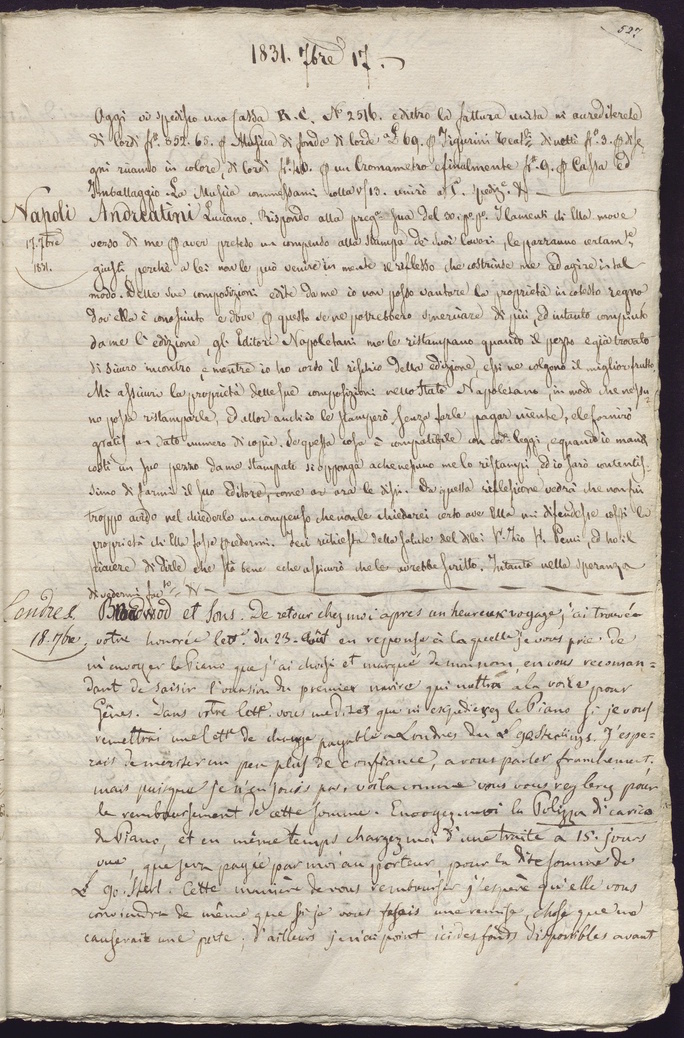 527
1831. 7bre 17.
Oggi vi spedisco una Cassa R. C. N° 2516. e dietro la fattura unita mi accrediterete
di lordi fr. 352. 65. p Musica di fondo di lorde £ 69. p Figurini Teat. di netti fr. 3. p di se-
gni in colore di lordi fr. 48. p un Cromametro e finalmente fr. 9. p Cassa ed
Imballaggio. La Musica commessami colla
Napoli
17. 7bre
1831.
Andreatini Luciano. Rispondo alla preg. sua del 30. pp. I lamenti di Ella move
verso di me p aver preteso un compenso alla stampa di suoi lavori, le parranno certam.te
giusti, perchè a lei non le può venire in mente il riflesso che costrinse me ad agire in tal
modo. Delle sue composizioni edite da me io non posso vantare la proprietà in cotesto regno
dov'ella è conosciuto e dove p questo se ne potrebbero smerciare di più, ed intanto compiuta
da me l'edizione, gli Editori Napoletani me le ristampano quando il pezzo è già trovato
di sicuro incontro, e mentre io ho corso il rischio della edizione, essi ne colgono il miglior frutto.
Mi assicuri la proprietà delle sue composizioni nello Stato Napoletano, in modo che nessu-
no possa ristamparle, ed allor anch'io le stamperò senza farle pagar niente, e le fornirò
gratis un dato numero di copie. Se questa cosa è compatibile con cod. leggi, e quando io mandi
costì un suo pezzo da me stampato si opponga a che nessuno me lo ristampi ed io sarò contentis-
simo di farmi il suo Editore, come or ora le dissi. Da questa riflessione vedrà che non fui
troppo avido nel chiederle un compenso che non le chiederei certo ove Ella mi difendesse costì la
proprietà di Ella fosse p cedermi. Jeri richiesta della salute del di lei Sr. Zio ed ho il
piacere di dirle che sta bene e che assicurò che le avrebbe scritto. Intanto nella speranza
di vedermi fav.to
Londres
18. 7bre
Broadwood et Sons. De retour chez moi après un heureux voyage, j'ai trouvée
votre honorée lett. du 23. Août en reponse à la quelle je vous prie de
m'envoyer le Piano que j'ai choisi et marqué de mon nom, en vous recoman-
dant de saisir l'occasion du premier navire qui mettra à la voile pour
Gênes. Dans votre lett. vous me ditez que m'expedierez le Piano si je vous
remettrai une lett. de change payable à Londres du £ 90 Sterlings. J'espe-
rais de meriter un peu plus de confiance, a vous parler franchement;
mais puisque je n'en jouis pas, voila comme vous vous reglerez pour
le remboursement de cette somme. Envoyez-moi la Polizza di carico
du Piano, et en même temps chargez moi d'une traite à 15. jours
vue, que sera payée par moi au porteur pour la dite somme de
£ 90. Sterl. Cette manière de vous rembourser j'espère qu'elle vous
conviendra de même que si je vous fesais une remise, chose que me
causerait une perte; d'ailleurs je n'ai point ici des fonds disponibles avant